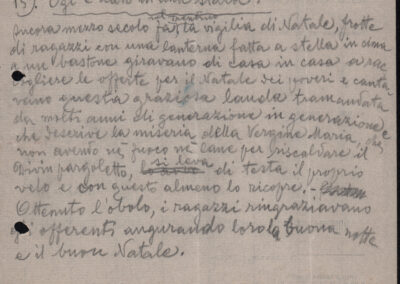 15). Ogi è nato in una stalla.
nel trentino
Ancora mezzo secolo fa la vigilia di Natale, frotte
di ragazzi con una lanterna fatta a stella in cima
a un bastone giravano di casa in casa a rac
cogliere le offerte per il Natale dei poveri e canta
vano questa graziosa lauda tramandata
da molti anni di generazione in generazione e
che descrive la miseria della Vergine Maria che
non avendo nè fuoco nè lane per riscaldare il
divin pargoletto, si leva di testa il proprio
velo e con questo almeno lo ricopre. -
Ottenuto l'obolo, i ragazzi ringraziavano
gli offerenti augurando loro la buona notte
e il buon Natale.